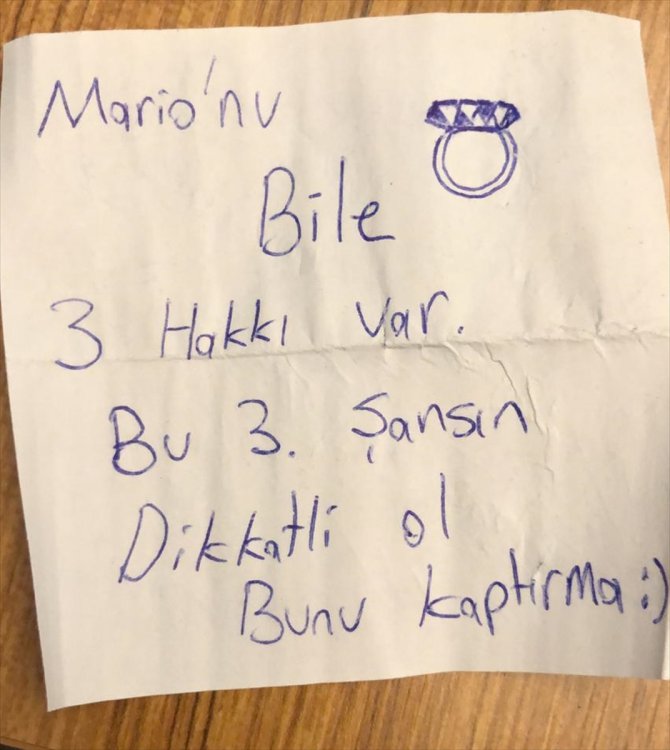 Mario'nu
Bile
3 Hakkı var.
Bu 3. Şansın
Dikkatli ol
Bunu kaptirma :)